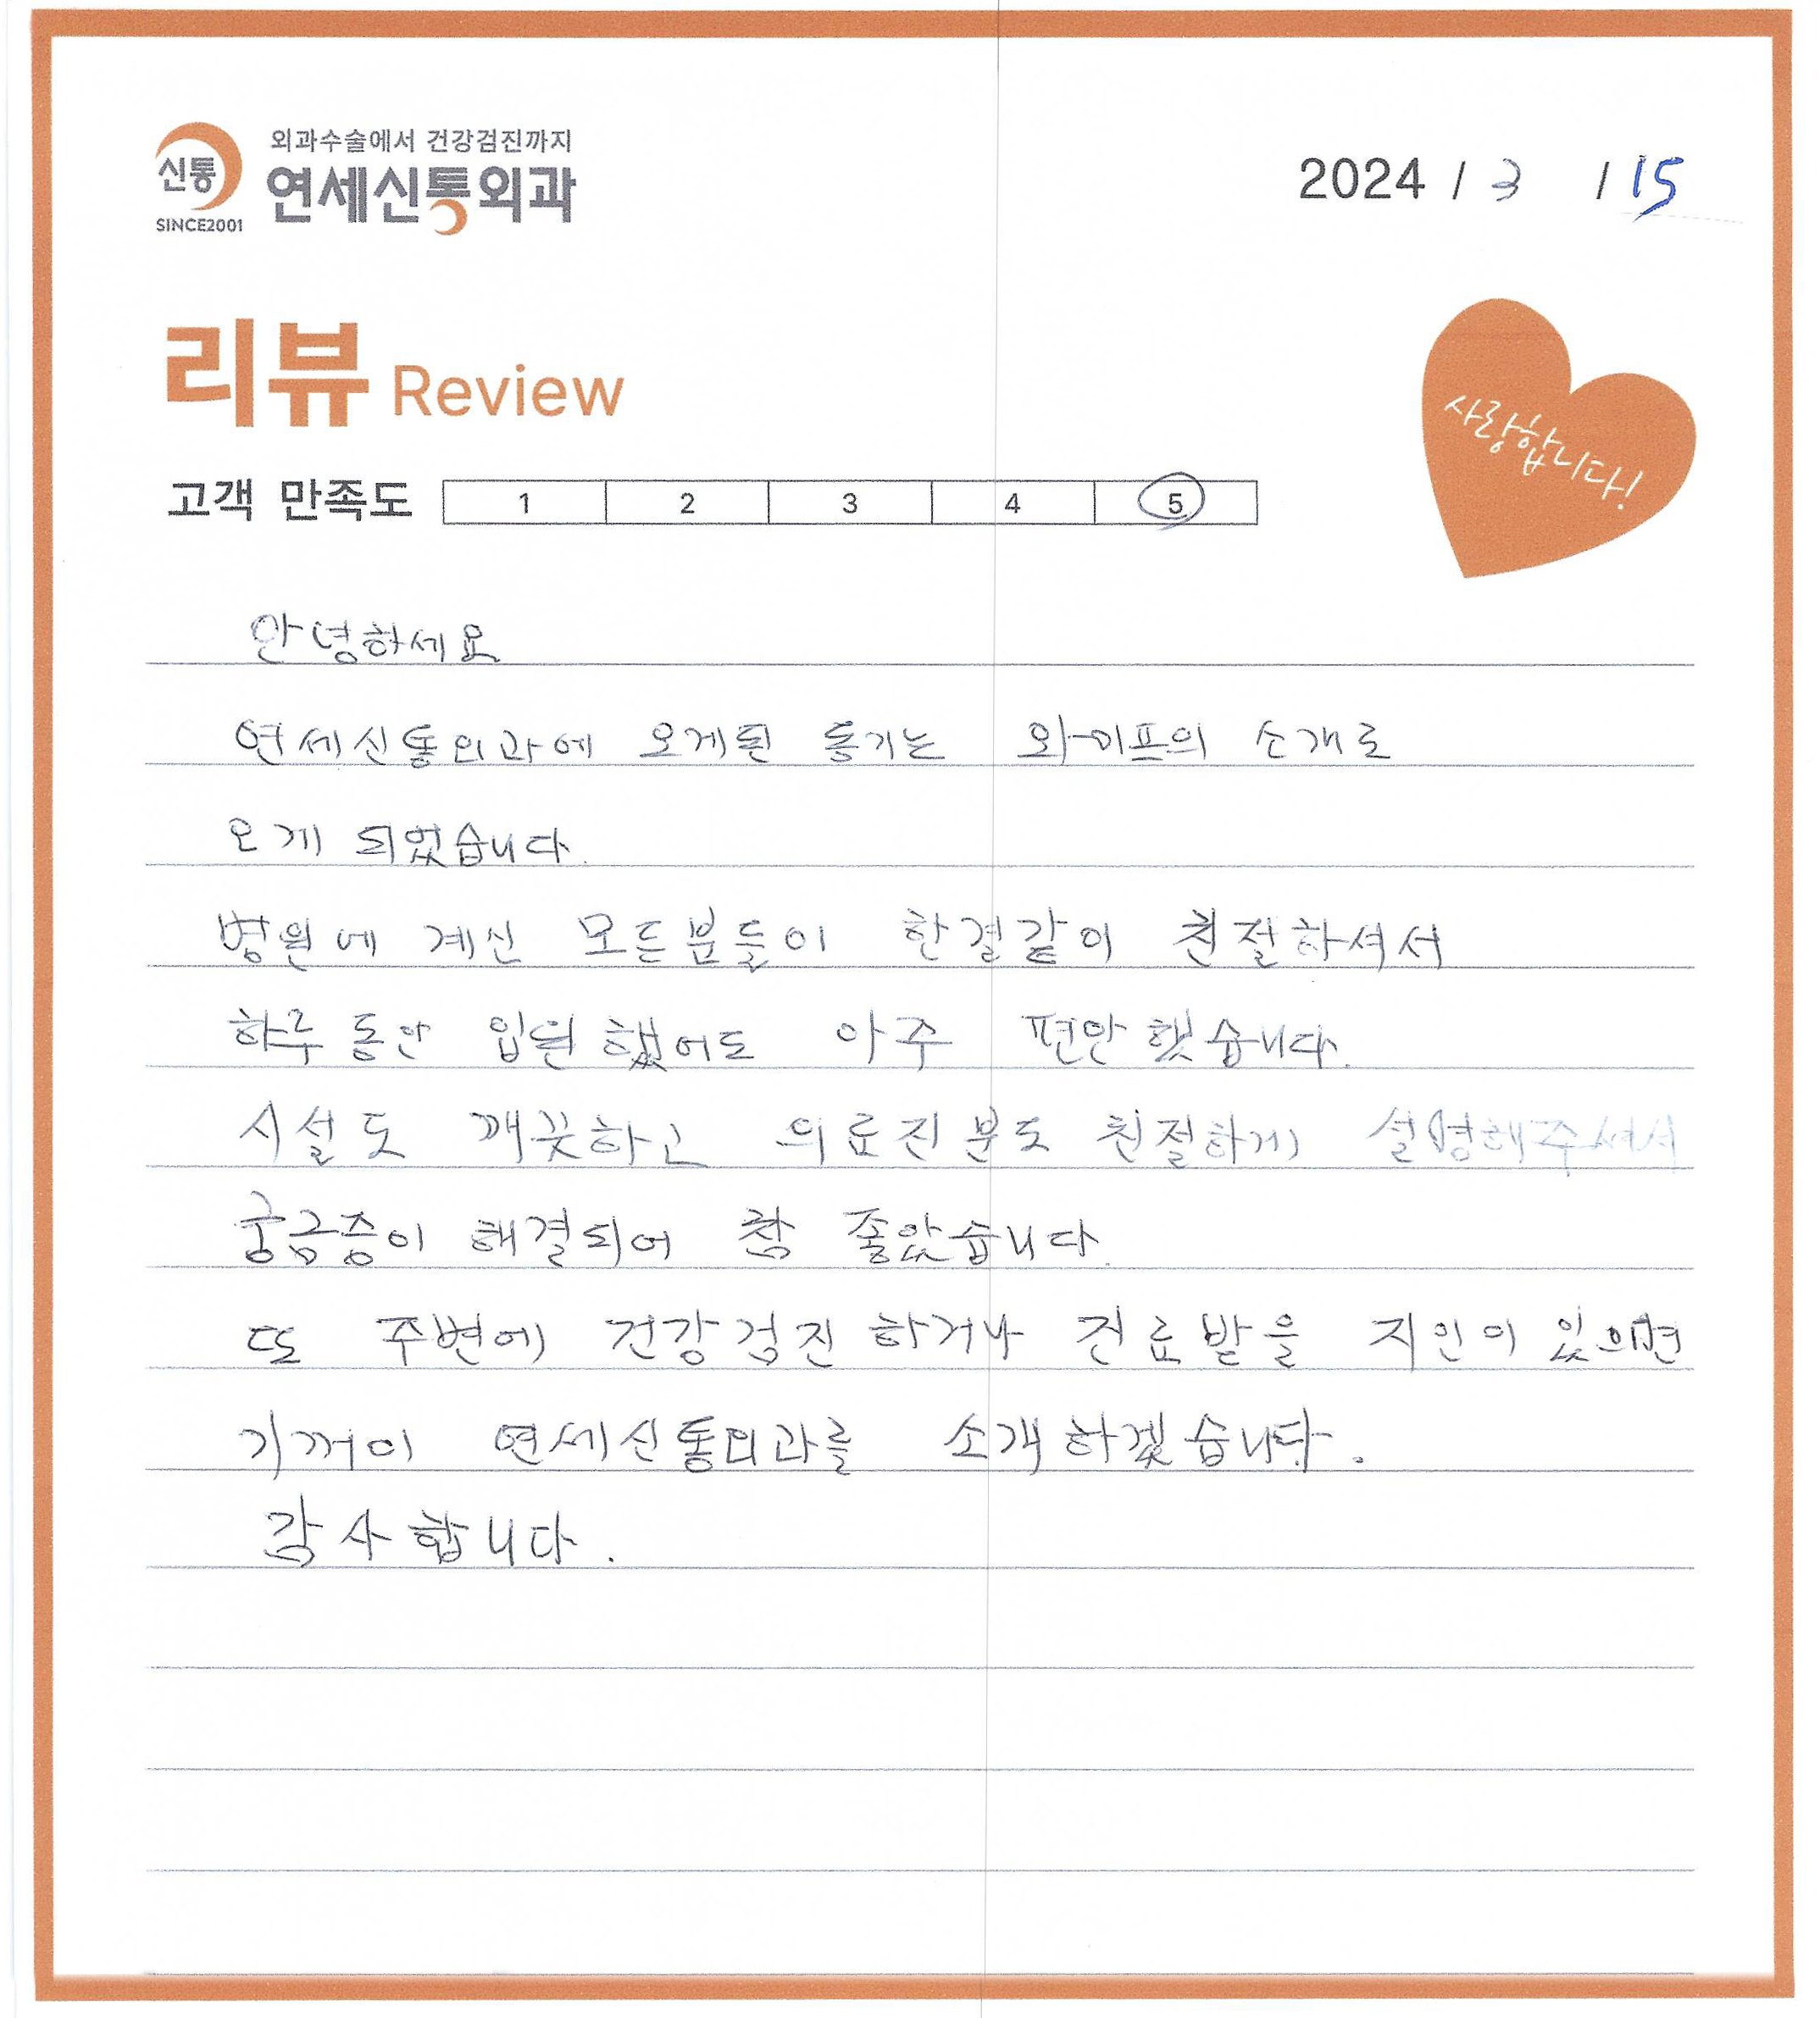 신통
SINCE2001
외과수술에서 건강검진까지
연세신통외과
2024 / 3 / 15
리뷰 Review
사랑합니다!
고객 만족도 1 2 3 4 5
안녕하세요
연세신통외과에 오게된 동기는 와이프의 소개로
오게 되었습니다.
병원에 계신 모든분들이 한결같이 친절하셔서
하루동안 입원했어도 아주 편안했습니다.
시설도 깨끗하고 의료진분도 친절하게 설명해주셔서
궁금증이 해결되어 참 좋았습니다.
또 주변에 건강검진하거나 진료받을 지인이 있으면
기꺼이 연세신통외과를 소개하겠습니다.
감사합니다.